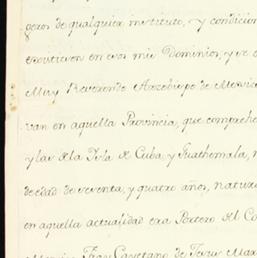 geros de qualquier instituto, y condicion
existiesen en esos mis Dominios, y se
Muy Reverendo Arzobispo de Mexico
van en aquella Provincia, que comprehe
y las de la Isla de Cuba, y Guathemala,
de edad de setenta, y quatro años, natura
en aquella actualidad era Portero del Co
Fray Cayetano de